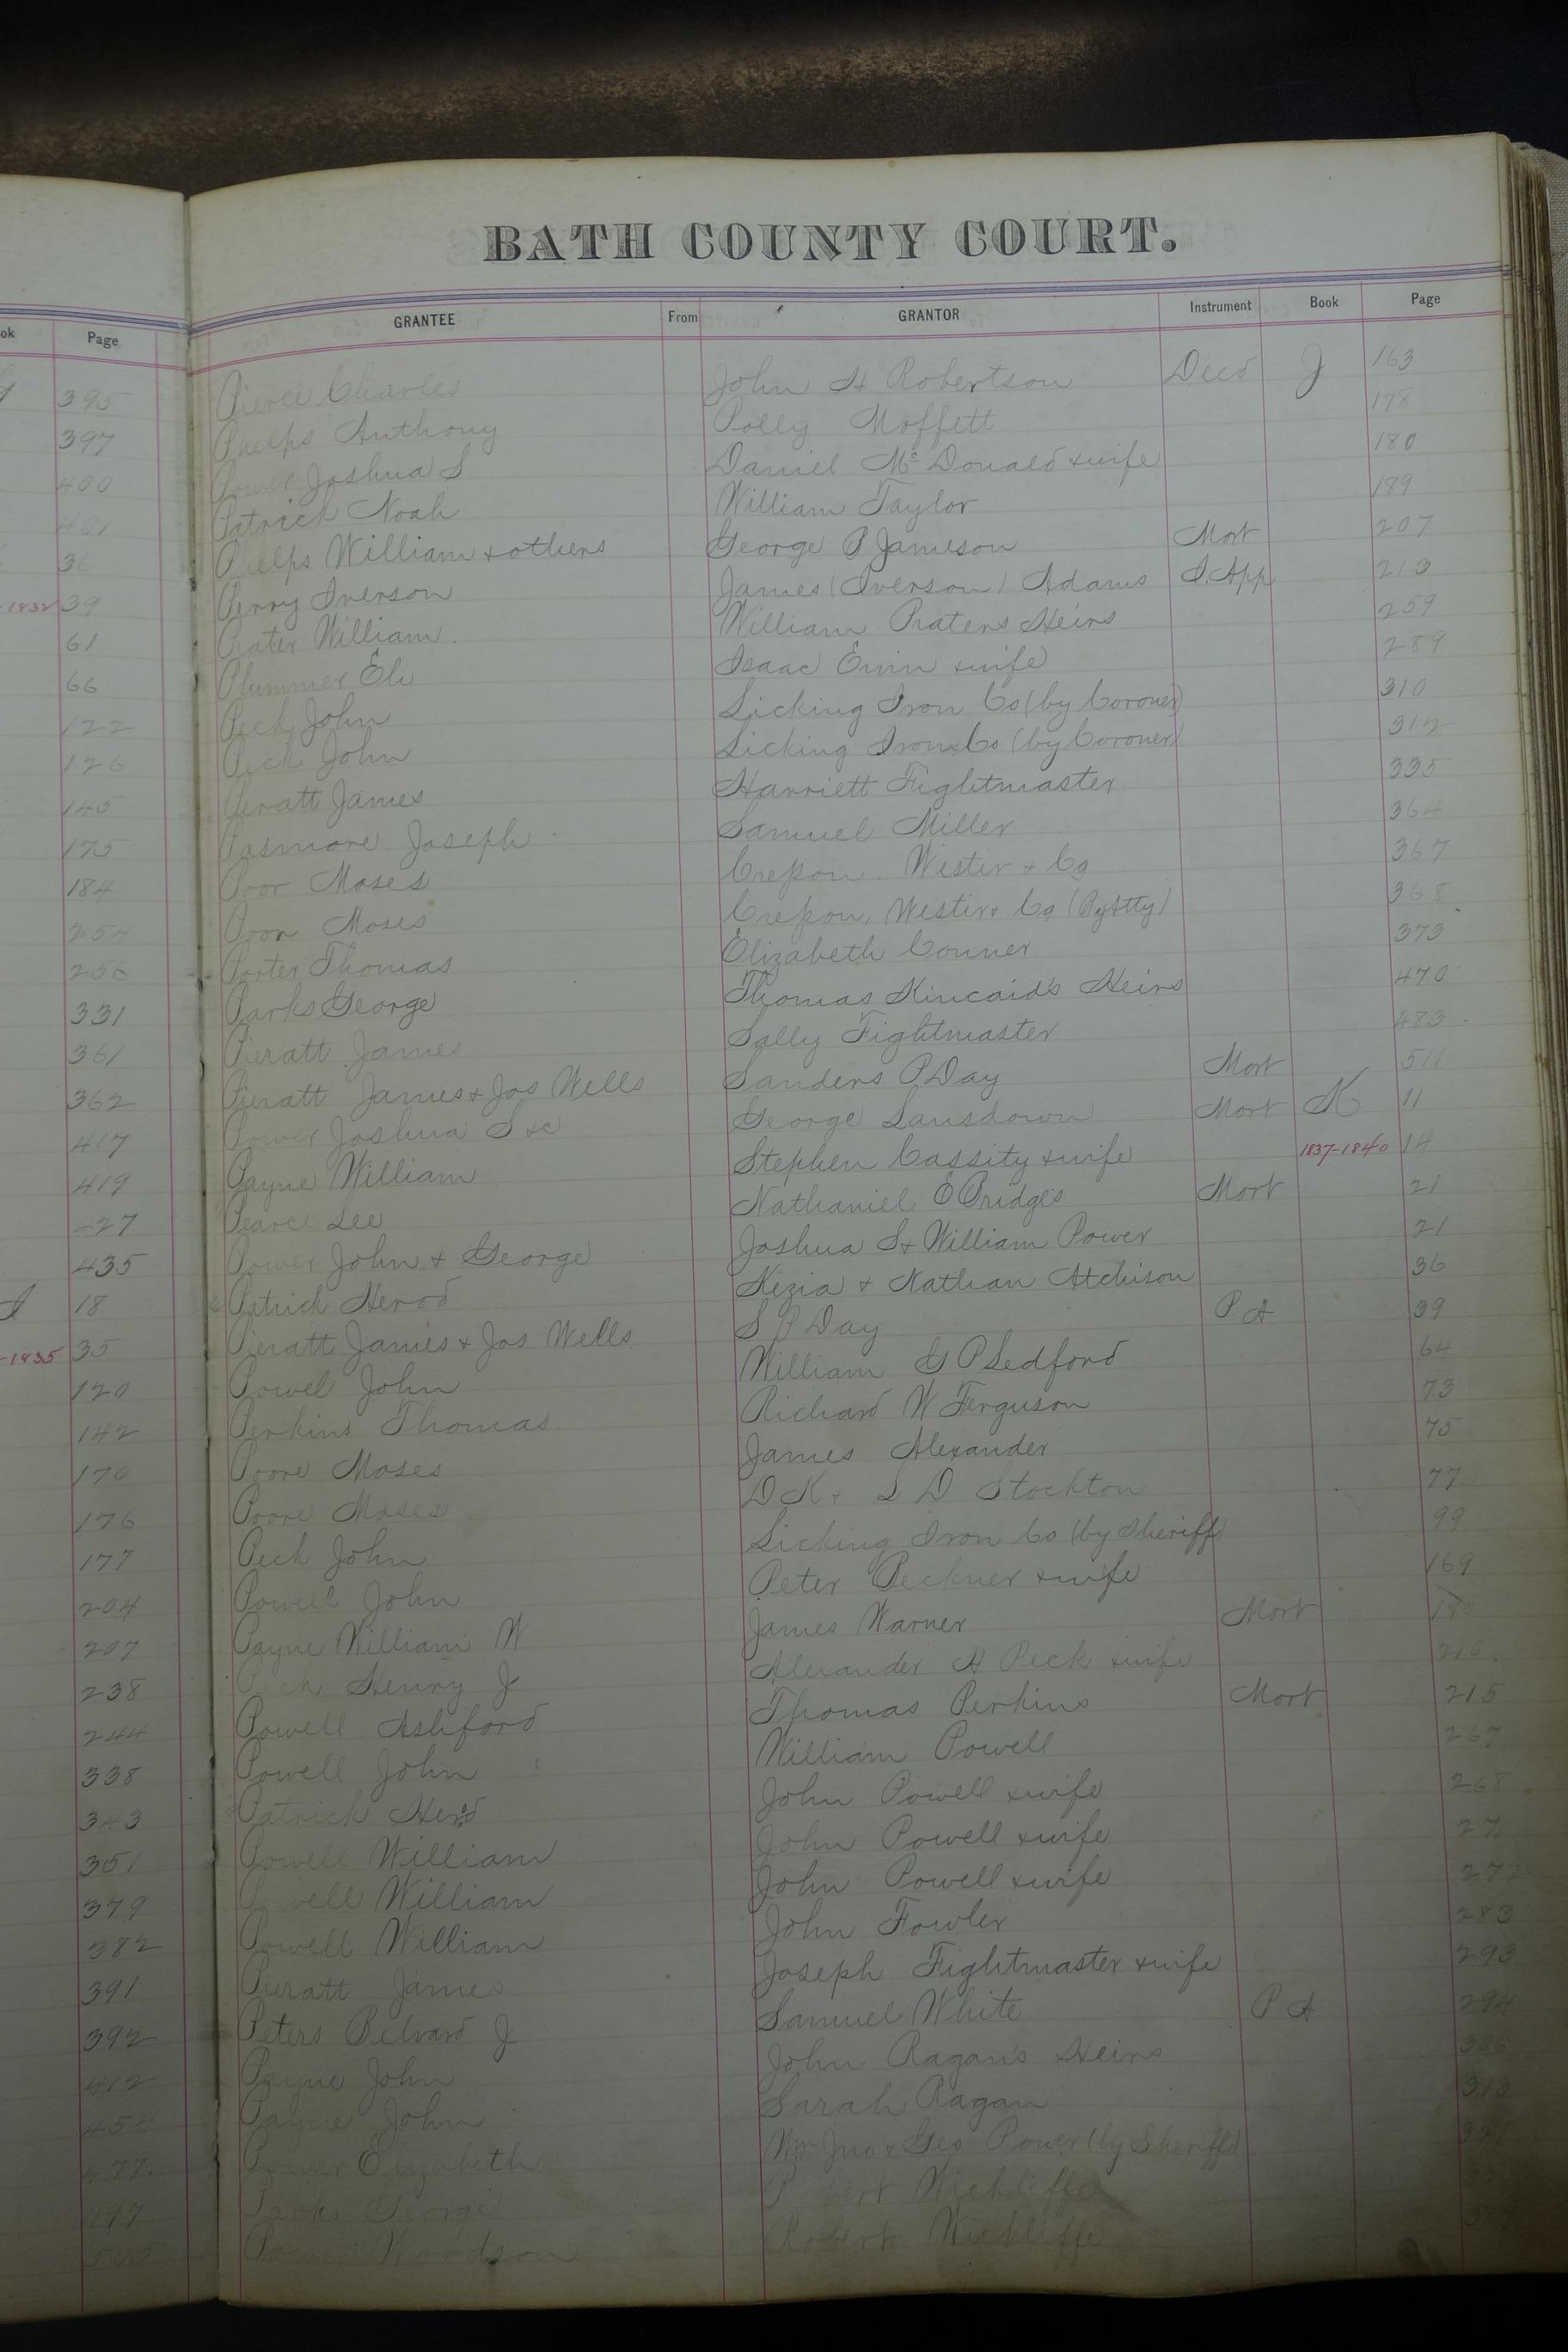 BATH COUNTY COURT.
ok Page
GRANTEE From GRANTOR Instrument Book Page
395 Pierce Charles John H Robertson Deed J 163
397 Phelps Anthony Polly Moffett 178
400 Power Joshua S Daniel Mc Donald & wife 180
401 Patrick Noah William Taylor 189
36 Phelps William & others George P Jameson Mort 207
-1832 39 Perry Iverson James (Iverson) Adams I. App 213
61 Prater William William Praters Heirs 259
66 Plummer Eli Isaac & wife 289
122 Peck John Licking Iron Co (by Coroner) 310
126 Peck John Licking Iron Co (by Coroner) 312
145 Pieratt James Harriett Fightmaster 335
175 Pasmore Joseph Samuel Miller 364
184 Poor Moses Crepon. Wester & Co 367
254 Poor Moses Crepon, Wester & Co (By Atty) 368
256 Porter Thomas Elizabeth Conner 373
331 Parks George Thomas Kincaid's Heirs 470
361 Pieratt James Sally Fightmaster 483
362 Pieratt James & Jos Wells Sanders P Day Mort 511
417 Power Joshua S &c George Lansdown Mort K 11
419 Payne William Stephen Cassity & wife 1837-1840 14
427 Pearce Lee Nathaniel E Bridges Mort 21
435 Power John & George Joshua S & William Power 21
I 18 Patrick Herod Kezia & Nathan Atchison 36
-1835 35 Pieratt James & Jos Wells S P Day P A 39
120 Powel John William G P Ledford 64
142 Perkins Thomas Richard W Ferguson 73
170 Poore Moses James Alexander 75
176 Poore Moses D K & L D Stockton 77
177 Peck John Licking Iron Co (by Sheriff) 99
204 Powell John Peter Peckner & wife 169
207 Payne William W James Warner Mort
238 Peck Henry J Alexander H Peck & wife
244 Powell Ashford Thomas Perkins Mort 215
338 Powell John William Powell 267
343 Patrick Herod John Powell & wife 268
351 Powell William John Powell & wife 271
379 Powell William John Powell & wife 272
382 Powell William John Fowler 283
391 Pieratt James Joseph Fightmaster & wife 293
392 Peters Belvard J Samuel White P A 294
412 Payne John John Ragan's Heirs 306
454 Payne John Sarah Ragan 313
477 Power Elizabeth Wm Jno & Geo Power (by Sheriff)
497 Parks George Robert Wickliffe
Woodson Robert Wickliffe